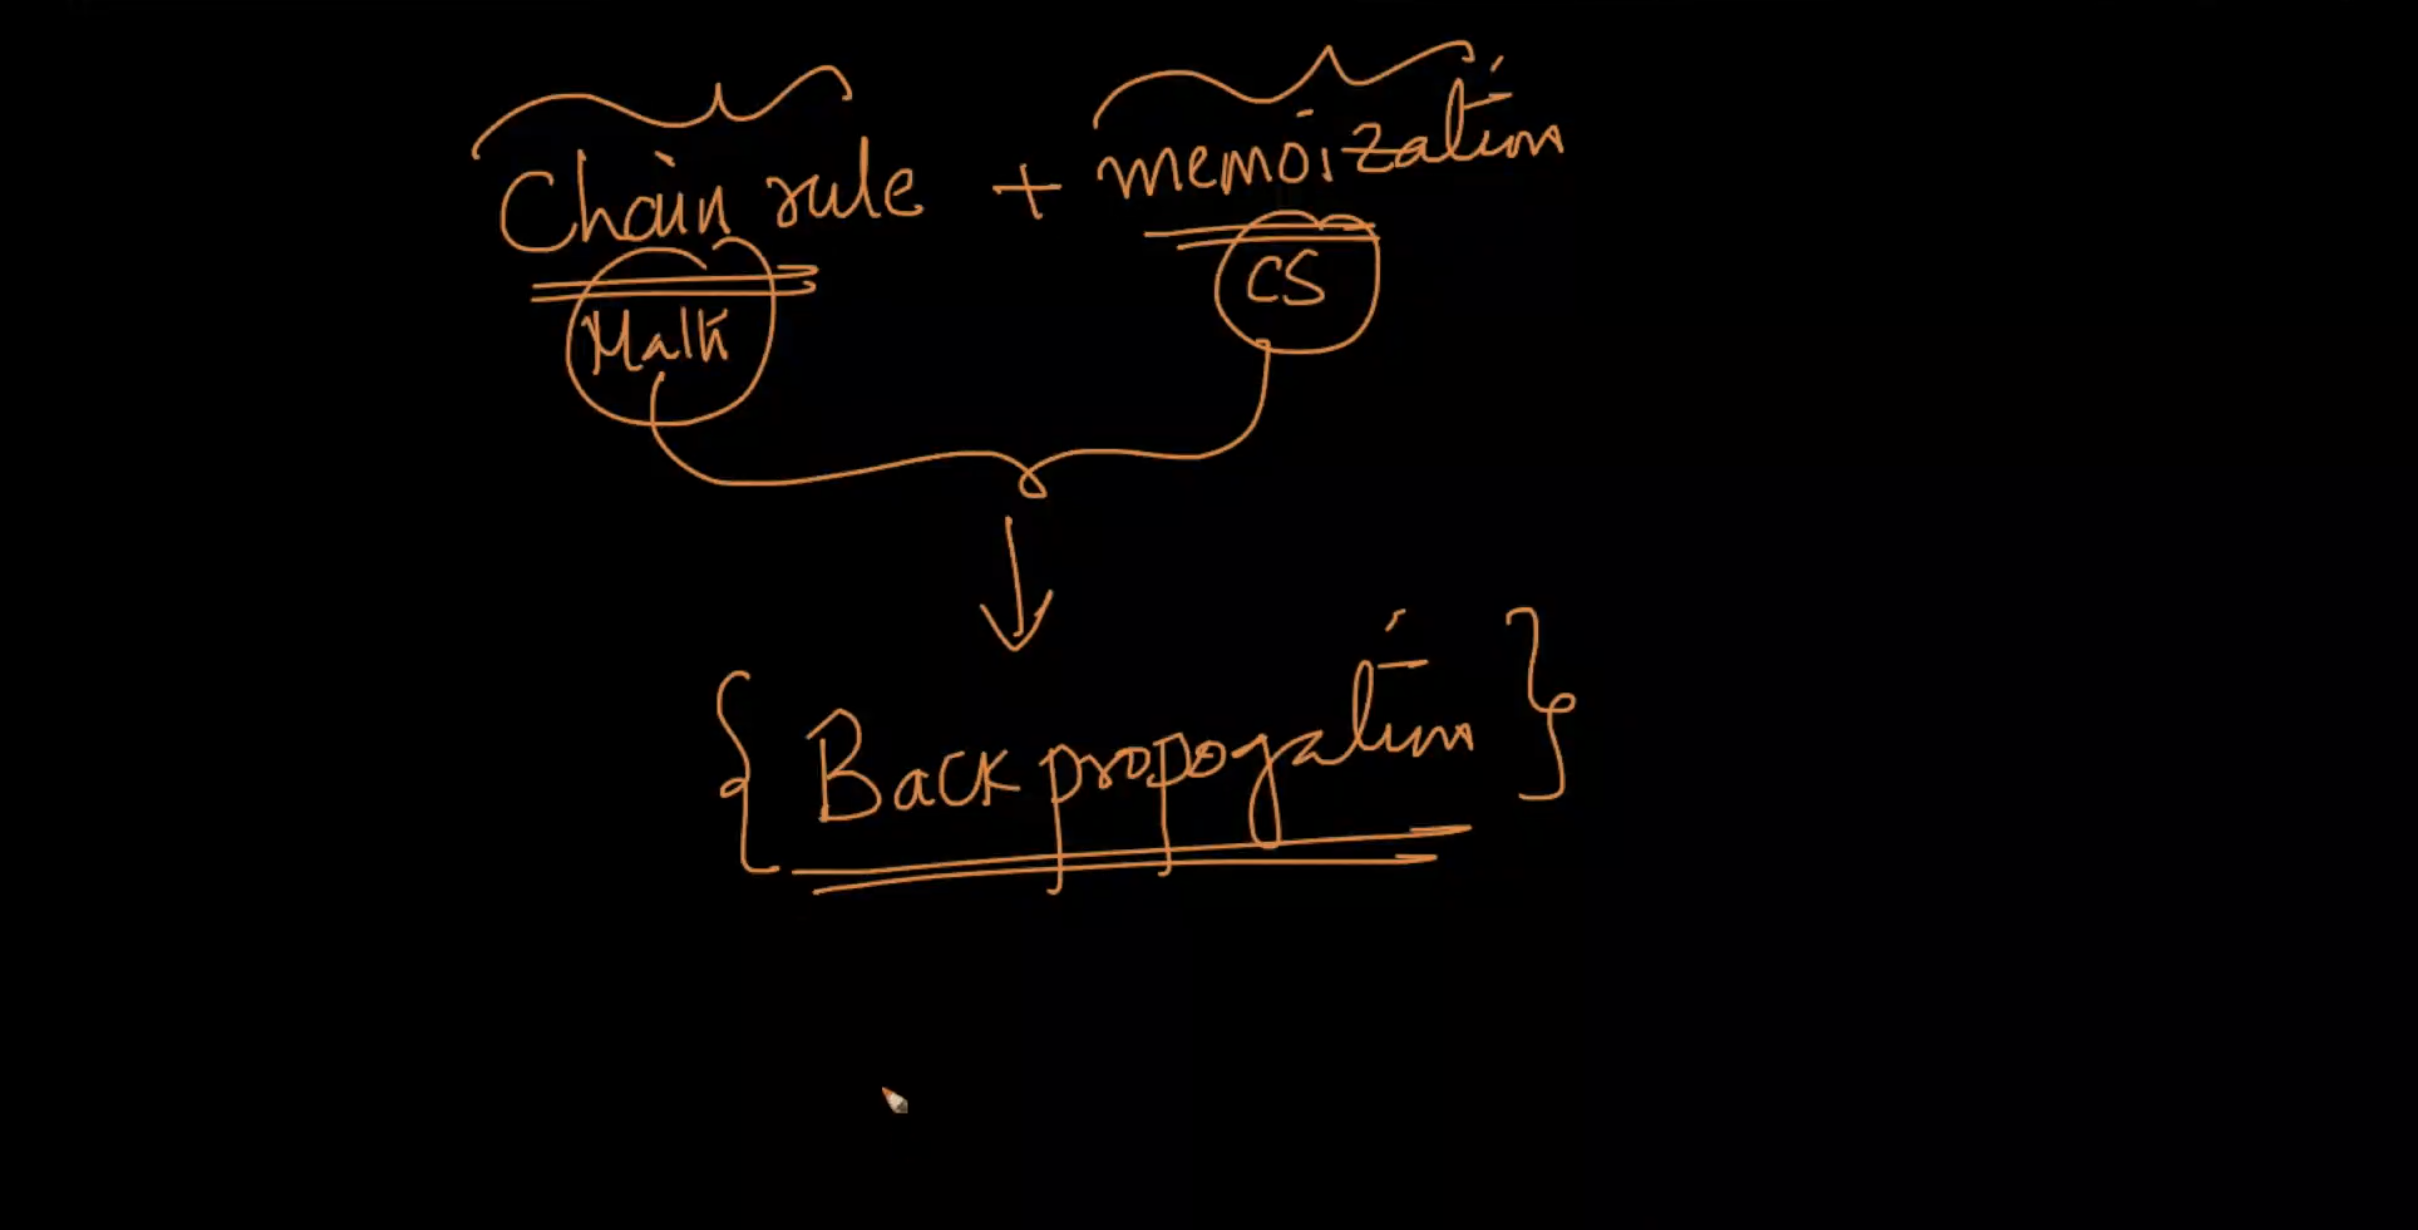 Chain rule + memoization
Math CS
{ Back propogation }